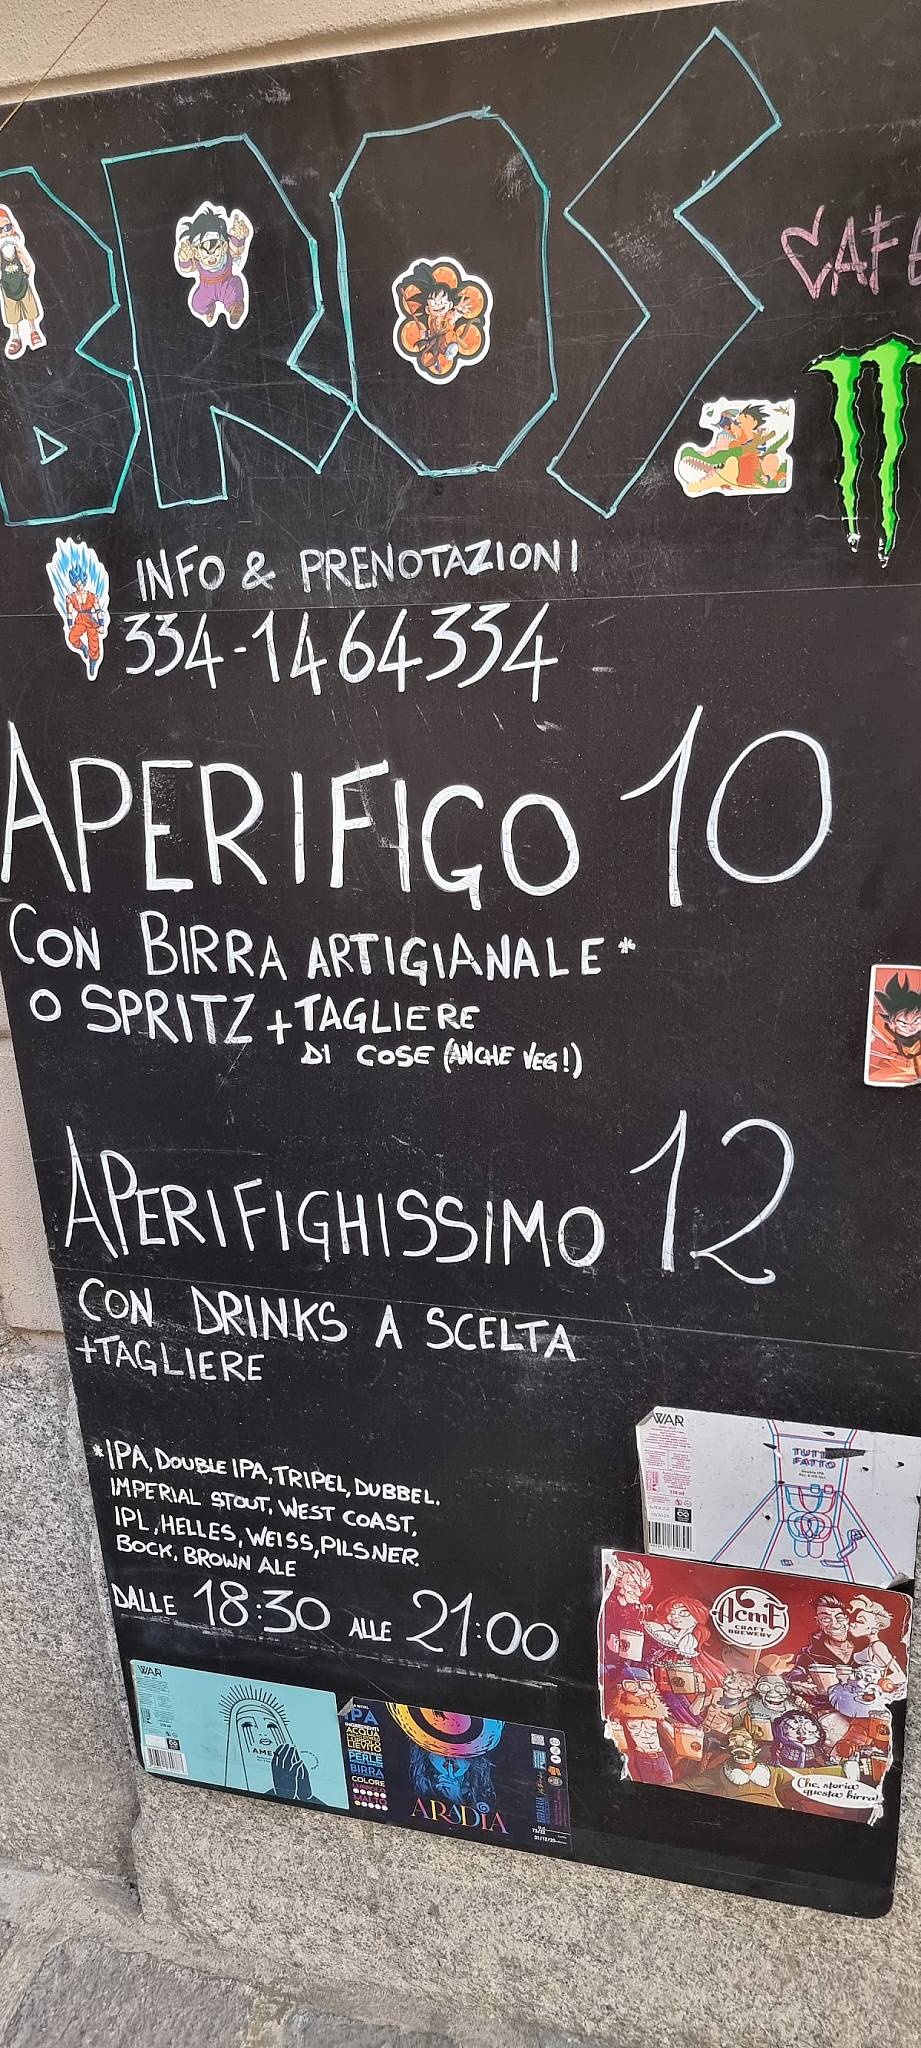 BROS
CAFE
INFO & PRENOTAZIONI
334-1464334
APERIFIGO 10
CON BIRRA ARTIGIANALE*
O SPRITZ + TAGLIERE
DI COSE (ANCHE VEG!)
APERIFIGHISSIMO 12
CON DRINKS A SCELTA
+TAGLIERE
*IPA, DOUBLE IPA, TRIPEL, DUBBEL.
IMPERIAL STOUT, WEST COAST,
IPL, HELLES, WEISS, PILSNER.
BOCK. BROWN ALE
DALLE 18:30 ALLE 21:00
WAR
TUTTO
FATTO
Double IPA
330 ml
ACME
CRAFT
BREWERY
Che, storia
questa birra!
WAR
AMEN
IPA
INGREDIENTI
ACQUA
LIEVITO
PERLE
BIRRA
COLORE
MALTO
ARADIA